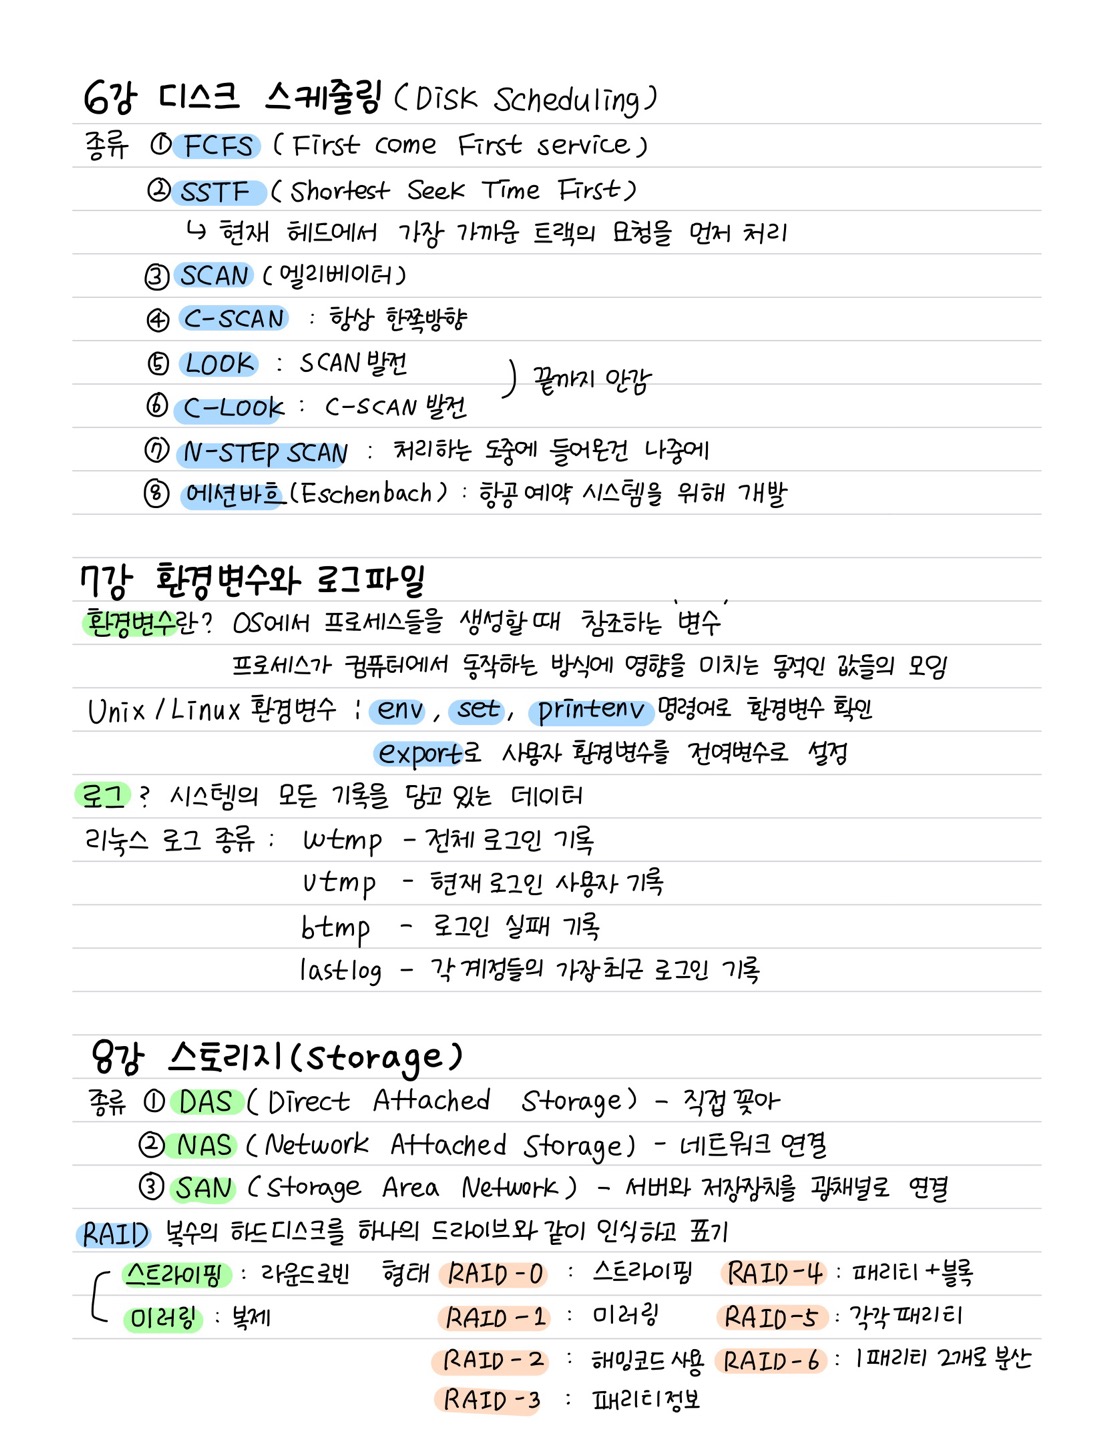 6강 디스크 스케줄링 (Disk Scheduling)
종류 ① FCFS (First come First service)
② SSTF (Shortest Seek Time First)
↳ 현재 헤드에서 가장 가까운 트랙의 요청을 먼저 처리
③ SCAN (엘리베이터)
④ C-SCAN : 항상 한쪽방향
⑤ LOOK : SCAN 발전
) 끝까지 안감
⑥ C-LOOK : C-SCAN 발전
⑦ N-STEP SCAN : 처리하는 도중에 들어온건 나중에
⑧ 에션바흐 (Eschenbach) : 항공 예약 시스템을 위해 개발
7강 환경변수와 로그파일
환경변수란? OS에서 프로세스들을 생성할 때 참조하는 '변수'
프로세스가 컴퓨터에서 동작하는 방식에 영향을 미치는 동적인 값들의 모임
Unix / Linux 환경변수 : env, set, printenv 명령어로 환경변수 확인
export로 사용자 환경변수를 전역변수로 설정
로그? 시스템의 모든 기록을 담고 있는 데이터
리눅스 로그 종류 : wtmp - 전체 로그인 기록
utmp - 현재 로그인 사용자 기록
btmp - 로그인 실패 기록
lastlog - 각 계정들의 가장 최근 로그인 기록
8강 스토리지 (Storage)
종류 ① DAS (Direct Attached Storage) - 직접 꽂아
② NAS (Network Attached Storage) - 네트워크 연결
③ SAN (Storage Area Network) - 서버와 저장장치를 광채널로 연결
RAID 복수의 하드디스크를 하나의 드라이브와 같이 인식하고 표기
스트라이핑 : 라운드로빈 형태 RAID-0 : 스트라이핑 RAID-4 : 패리티+블록
미러링 : 복제 RAID-1 : 미러링 RAID-5 : 각각 패리티
RAID-2 : 해밍코드 사용 RAID-6 : 1패리티 2개로 분산
RAID-3 : 패리티정보